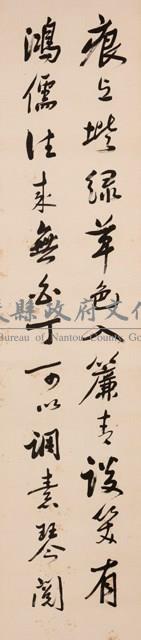 痕上堦綠草色入簾青談笑有
鴻儒往來無白丁可以調素琴閱
縣政府文化
Bureau of Nantou County Go